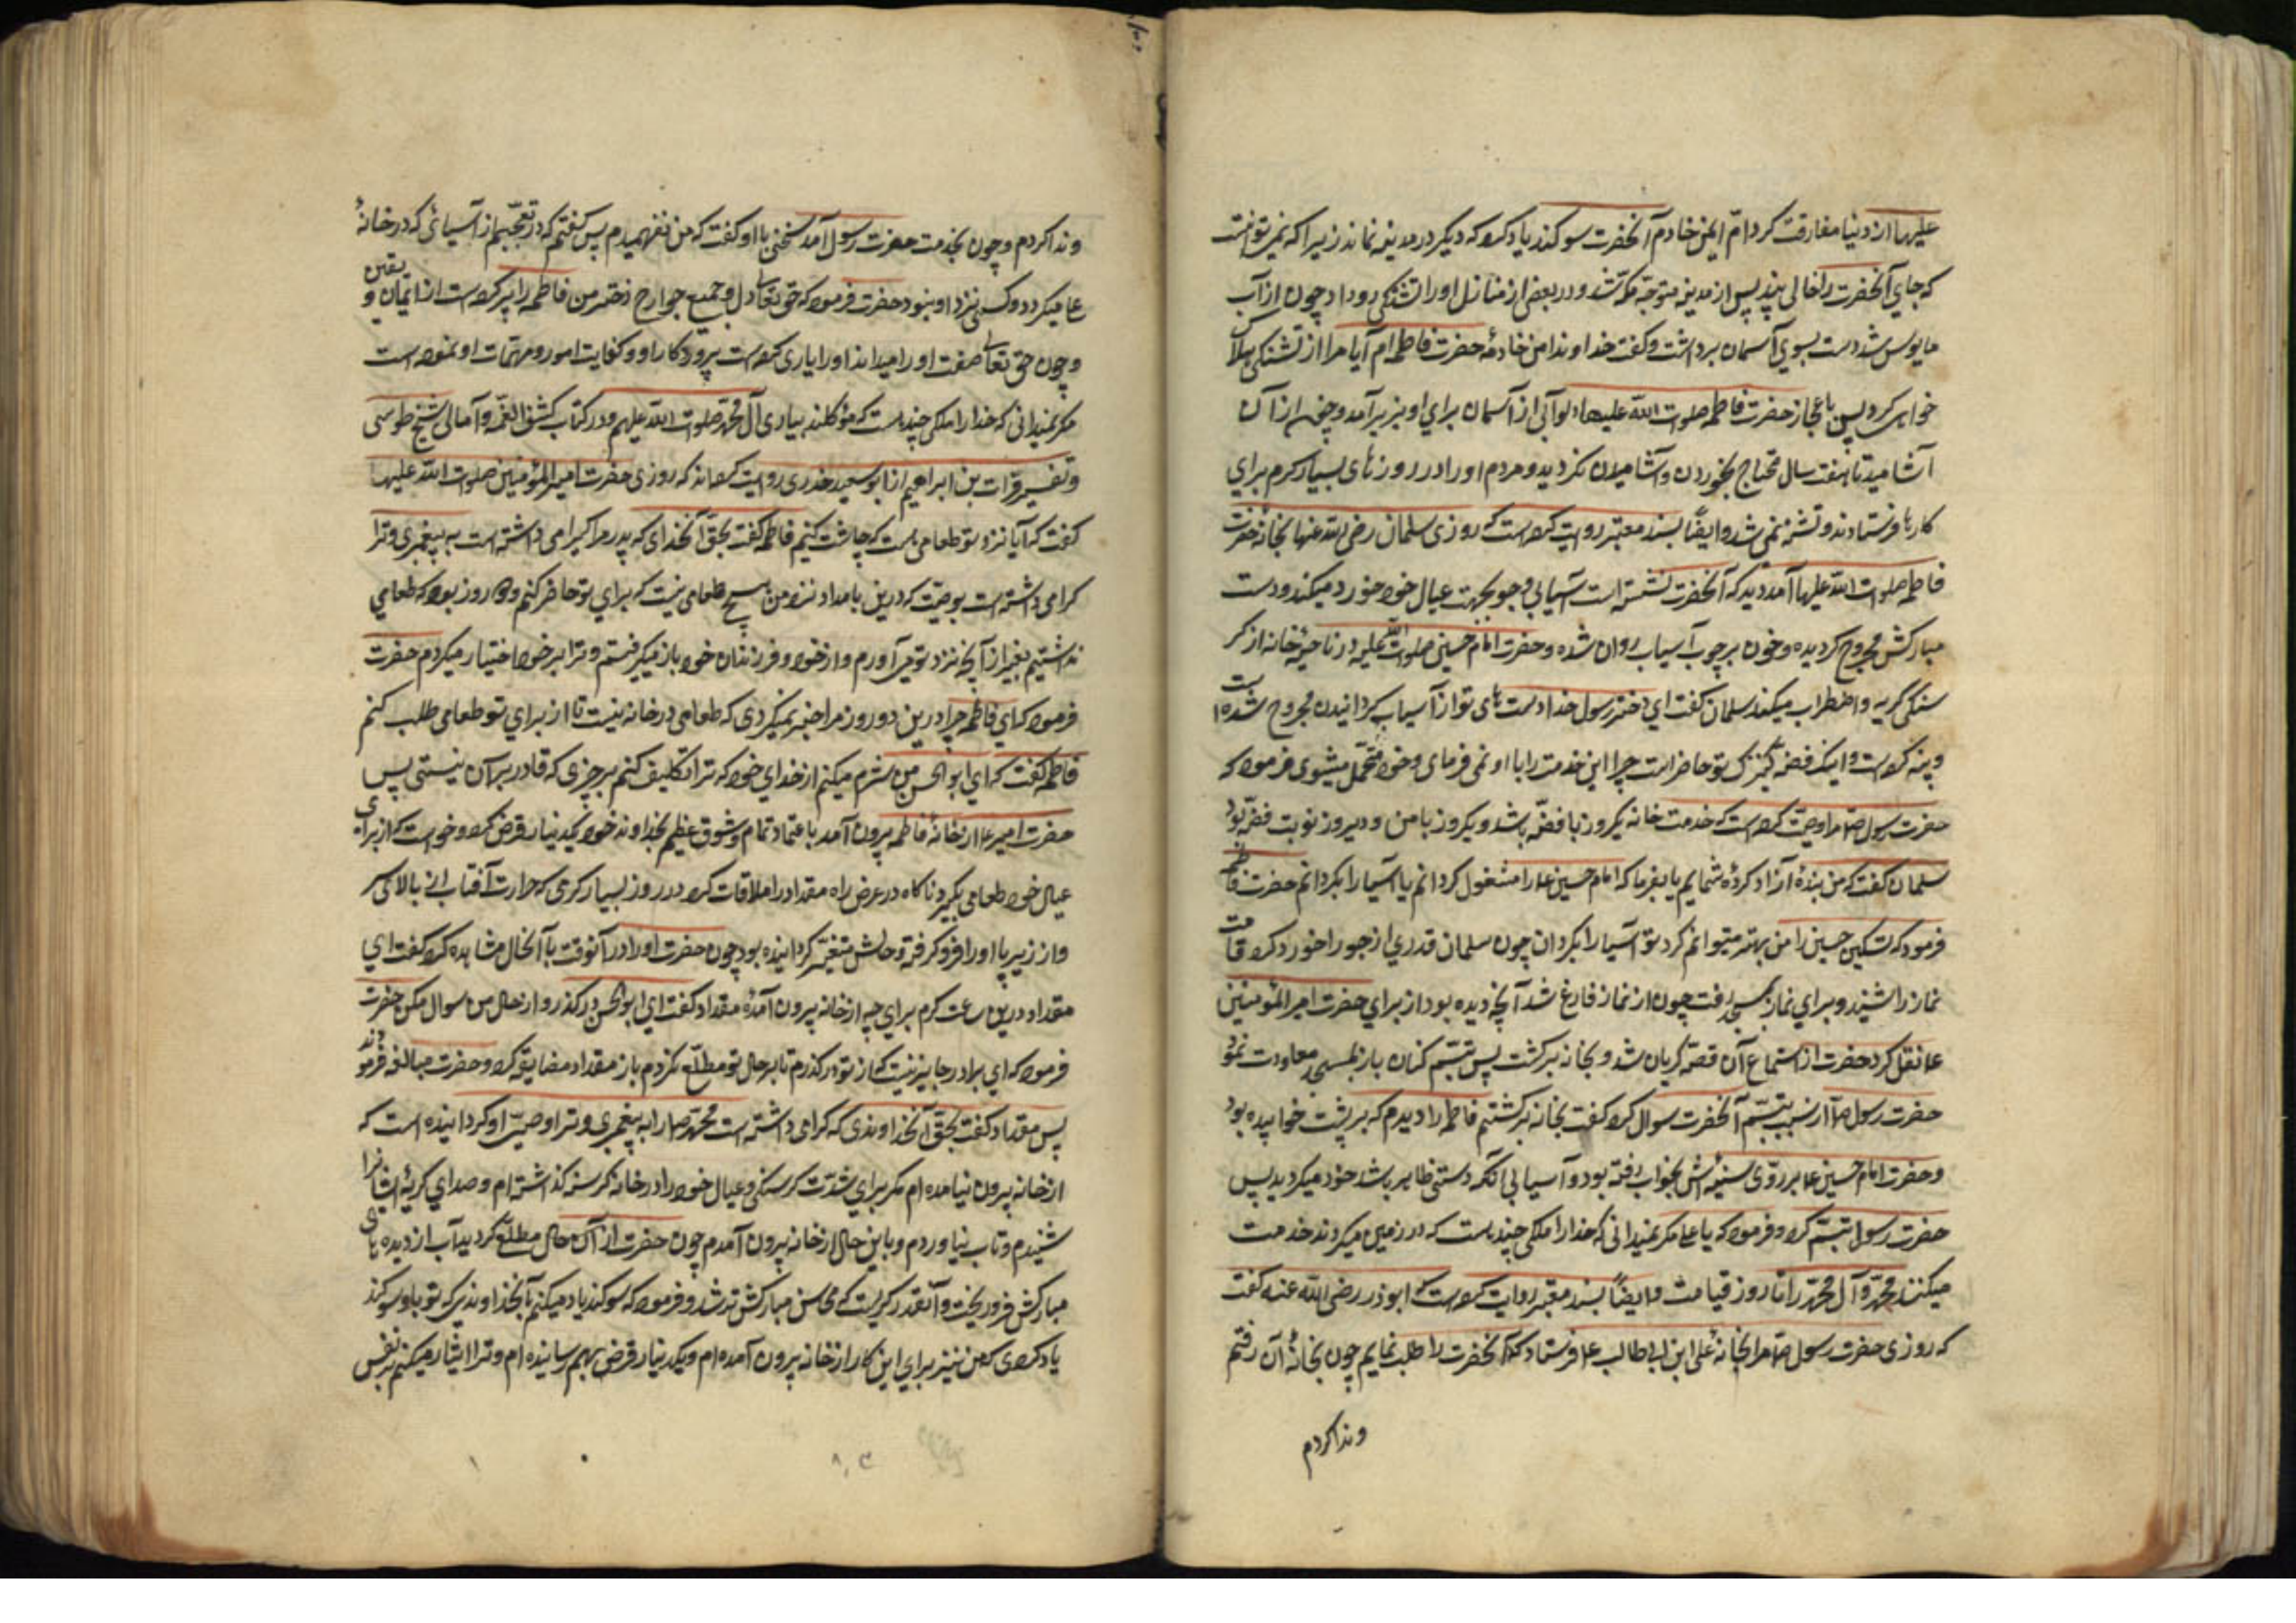 علیها از دنیا مفارقت کرد امّ ایمن خادم آنحضرت سوکند یاد کرد که دیکر در مدینه نماند زیرا که نمیتوانست
که جای آنحضرت را خالی بیند پس از مدینه متوجّه مکّه شد و در بعضی از منازل او را تشنکی رو داد چون از آب
مایوس شد دست بسوی آسمان برداشت و کفت خداوندا من خادمهٔ حضرت فاطمه ام آیا مرا از تشنکی هلاک
خواهی کرد پس باعجاز حضرت فاطمه صلوات الله علیها دلو آبی از آسمان برای او بزیر آمد و چون از آن
آشامید تا هفت سال محتاج بخوردن و آشامیدن نکردید و مردم او را در روزهای بسیار کرم برای
کارها میفرستادند و تشنه نمی شد و ایضًا بسند معتبر روایت کرده است که روزی سلمان رضی الله عنها بخانهٔ حضرت
فاطمه صلوات الله علیها آمد دید که آنحضرت نشسته است آسیابی و جو بجهت عیال خود خورد میکند و دست
مبارکش مجروح کردیده و خون بر چوب آسیاب روان شده و حضرت امام حسین صلوات الله علیه در ناحیهٔ خانه از کر
سنکی کریه و اضطراب میکند سلمان کفت ای دختر رسول خدا دست های تو از آسیاب کردانیدن مجروح شده است
و پینه کرده است و اینک فضّه کنیزک تو حاضر است چرا این خدمت را باو نمی فرمای و خود متحمّل میشوی فرمود که
حضرت رسول ص مرا وصیّت کرده است که خدمت خانه یکروز با فضّه باشد و یکروز با من و دیروز نوبت فضّه بود
سلمان کفت که من بندهٔ آزاد کردهٔ شمایم یا بفرما که امام حسین ع را مشغول کردانم یا آسیا را بکردانم حضرت فاطمه
فرمود که تسکین حسین را من بهتر میتوانم کرد تو آسیا را بکردان چون سلمان قدری از جو را خورد کرد اقامت
نماز را شنید و برای نماز بمسجد رفت چون از نماز فارغ شد آنچه دیده بود از برای حضرت امیر المؤمنین
ع نقل کرد حضرت از استماع آن قصّه کریان شد و بخانه برکشت پس تبسّم کنان باز بمسجد معاودت نمود
حضرت رسول ص از سبب تبسّم آنحضرت سوال کرد کفت بخانه برکشتم فاطمه را دیدم که بر پشت خوابیده بود
و حضرت امام حسین ع بر روی سینهٔ اش بخواب رفته بود و آسیا بی آنکه دستی ظاهر باشد خود میکردید پس
حضرت رسول تبسّم کرد و فرمود که یا علی مکر نمیدانی که خدا را ملکی چند هست که در زمین میکردند خدمت
میکنند محمّد و آل محمّد را تا روز قیامت و ایضاً بسند معتبر روایت کرده است که ابوذر رضی الله عنه کفت
که روزی حضرت رسول ص مرا بخانهٔ علی ابن ابی طالب ع فرستاد که آنحضرت را طلب نمایم چون بخانهٔ آن رفتم
و ندا کردم
و ندا کردم و چون بخدمت حضرت رسول آمد سخنی با او کفت که من نفهمیدم پس کفتم که در تعجّبم از آسیائی که در خانهٔ
ع میکردد و کسی نزد او نبود حضرت فرمود که حق تعالی دل و جمیع جوارح دختر من فاطمه را پر کرده است از ایمان و یقین
و چون حق تعالی ضعف او را میداند او را یاری کرده است بروزکار او و کفایت امور و مهمّات او نموده است
مکر نمیدانی که خدا را ملکی چند هست که موکلند بیاری آل محمّد صلوات الله علیهم و در کتاب کشف الغمّه و آمالی شیخ طوسی
و تفسیر فرات بن ابراهیم از ابو سعید خدری روایت کرده اند که روزی حضرت امیر المؤمنین صلوات الله علیها
کفت که آیا نزد تو طعامی هست که چاشت کنیم فاطمه کفت بحقّ آنخدای که پدر مرا کرامی داشته است به پیغمبری و ترا
کرامی داشته است بوصیّت که درین بامداد نزد من هیچ طعامی نیست که برای تو حاضر کنم و دو روز بود که طعامی
نداشتیم بغیر از آنچه نزد تو می آوردم و از خود و فرزندان خود باز میکرفتم و ترا بر خود اختیار میکردم حضرت
فرمود که ای فاطمه چرا درین دو روز مرا خبر نمیکردی که طعامی در خانه نیست تا از برای تو طعامی طلب کنم
فاطمه کفت که ای ابو الحسن من شرم میکنم از خدای خود که ترا تکلیف کنم بر چیزی که قادر بر آن نیستی پس
حضرت امیر ع از خانهٔ فاطمه بیرون آمد با عتماد تمام و شوق عظیم بخداوند خود یکدینار قرض کرد و خواست که از برای
عیال خود طعامی بکیرد ناکاه در عرض راه مقداد را ملاقات کرد در روز بسیار کرمی که حرارت آفتاب از بالای سر
و از زیر پا او را فرو کرفته و حالش متغیّر کردانیده بود چون حضرت او را در آنوقت با آنحال مشاهده کرد کفت ای
مقداد درین ساعت کرم برای چه از خانه بیرون آمدهٔ مقداد کفت ای ابو الحسن درکذر و از حال من سوال مکن حضرت
فرمود که ای برادر جایز نیست که از تو درکذرم تا بر حال تو مطلّع نکردم باز مقداد مضایقه کرد و حضرت مبالغه فرمودند
پس مقداد کفت بحقّ آنخداوندی که کرامی داشته است محمّد ص را به پیغمبری و ترا وصیّ او کردانیده است که
از خانه بیرون نیامده ام مکر برای شدّت کرسنکی و عیال خود را در خانه کرسنه کذاشته ام و صدای کریهٔ ایشانرا
شنیدم و تاب نیاوردم و با این حال از خانه بیرون آمدم چون حضرت از آن حال مطلّع کردید آب از دیده های
مبارکش فرو ریخت و آنقدر کریست که محاسن مبارکش تر شد و فرمود که سوکند یاد میکنم بآنخداوندی که تو باو سوکند
یاد کردی که من نیز برای این کار از خانه بیرون آمده ام و یکدینار قرض بهم رسانیده ام و ترا ایثار میکنم بر نفس